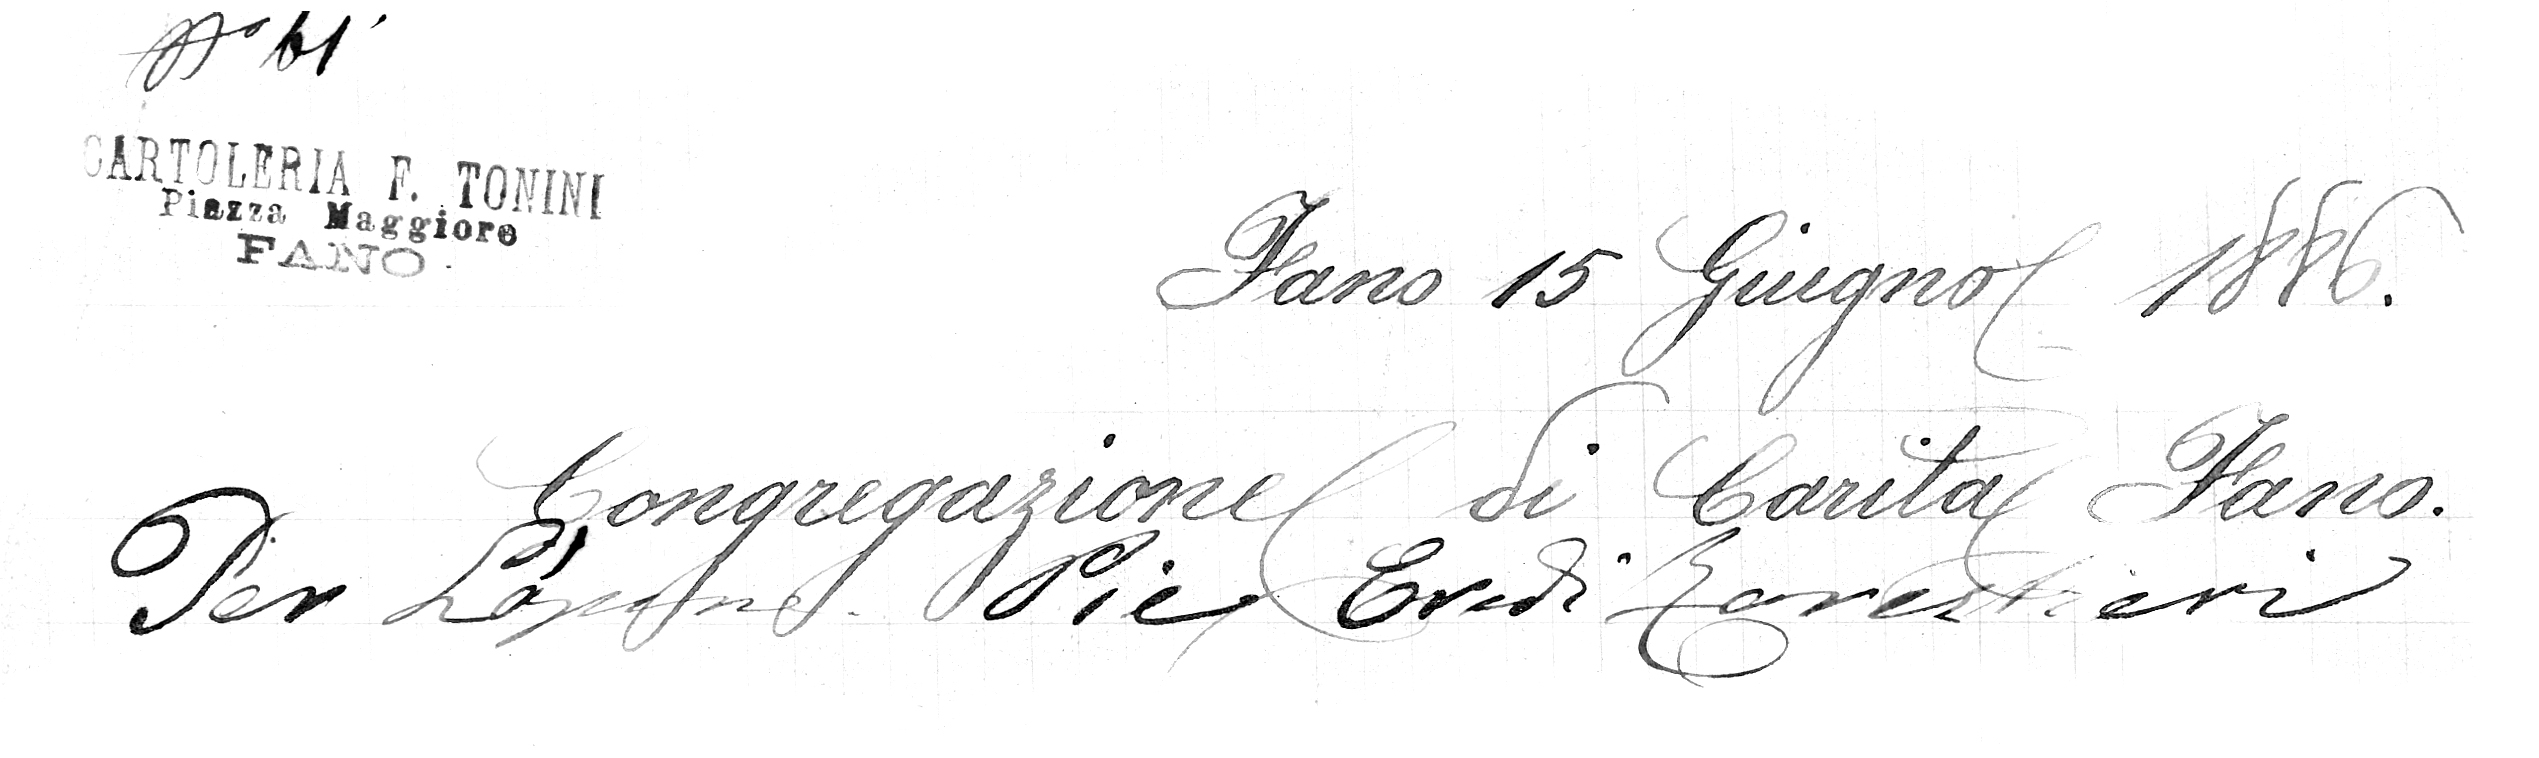 N° 61
CARTOLERIA F. TONINI
Piazza Maggiore
FANO
Fano 15 Giugno 1886.
Congregazione di Carità Fano.
Per Pie Eredi